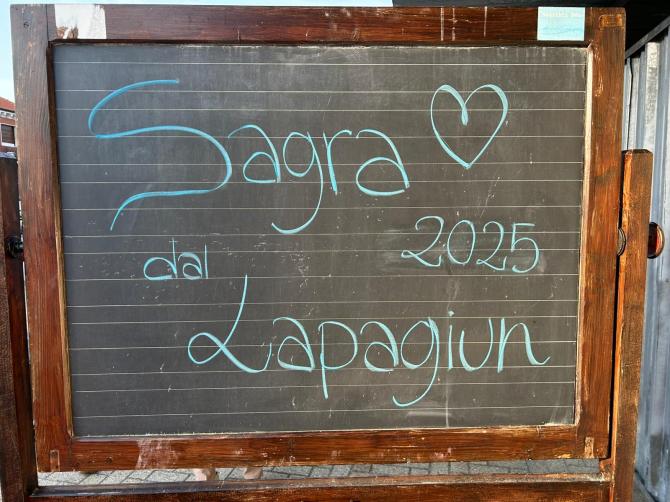 Sagra
dal 2025
Lapagiun